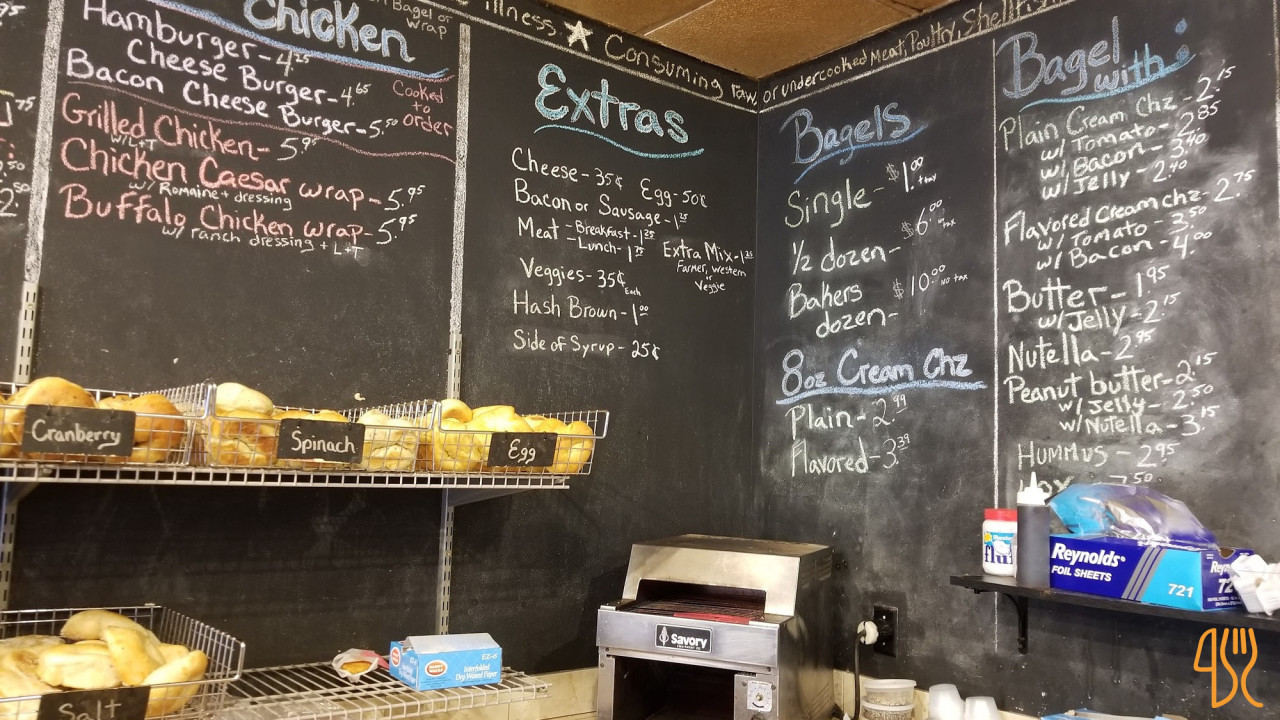 Chicken
Bagel or
Wrap
Hamburger - 4.25
Cheese Burger - 4.65
Bacon Cheese Burger - 5.50
Cooked
to
order
Grilled Chicken - 5.95
w/L+T
Chicken Caesar wrap - 5.95
w/ Romaine + dressing
Buffalo Chicken wrap - 5.95
w/ ranch dressing + L+T
illness ★ Consuming raw, or undercooked Meat, Poultry, Shellfish
Extras
Cheese - 35¢ Egg - 50¢
Bacon or Sausage - 1.25
Meat - Breakfast - 1.25
- Lunch - 1.75
Extra Mix - 1.25
Farmer, Western
or
Veggie
Veggies - 35¢ Each
Hash Brown - 1.00
Side of Syrup - 25¢
Bagels
Single - $1.00 + tax
1/2 dozen - $6.00 no tax
Bakers
dozen - $10.00 no tax
8oz Cream Chz
Plain - 2.99
Flavored - 3.39
Bagel
with:
Plain Cream Chz - 2.15
w/ Tomato - 2.85
w/ Bacon - 3.40
w/ Jelly - 2.40
Flavored Cream chz - 2.75
w/ Tomato - 3.50
w/ Bacon - 4.00
Butter - 1.95
w/ Jelly - 2.15
Nutella - 2.95
Peanut butter - 2.15
w/ Jelly - 2.50
w/ Nutella - 3.15
Hummus - 2.95
7.50
Cranberry
Spinach
Egg
Salt
Savory
EZ-6
Interfolded
Dry Waxed Paper
fluff
Reynolds
FOIL SHEETS
721